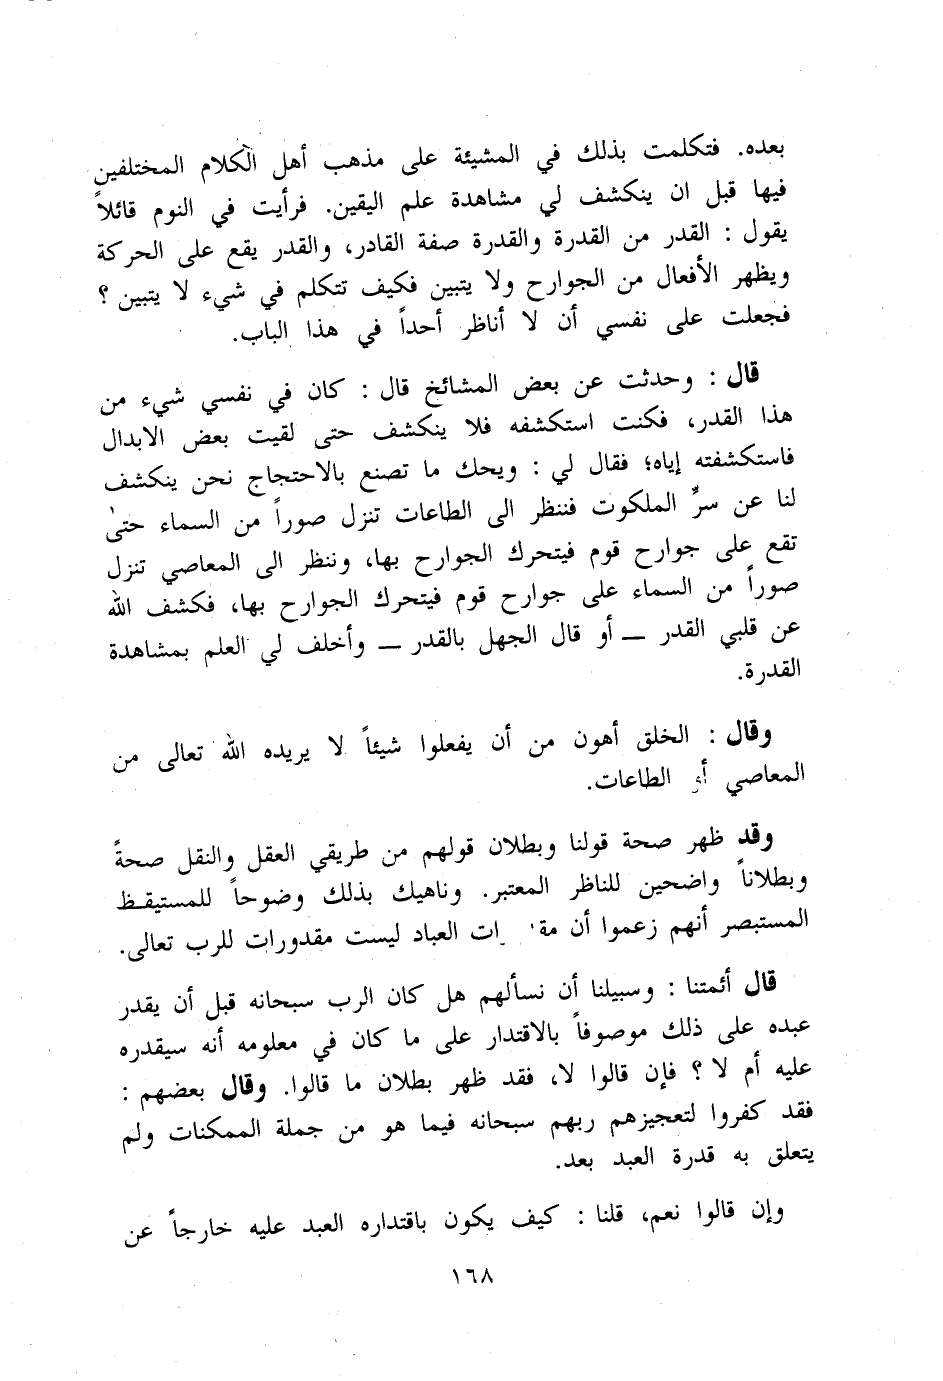 بعده. فتكلمت بذلك في المشيئة على مذهب أهل الكلام المختلفين
فيها قبل ان ينكشف لي مشاهدة علم اليقين. فرأيت في النوم قائلاً
يقول : القدر من القدرة والقدرة صفة القادر، والقدر يقع على الحركة
ويظهر الأفعال من الجوارح ولا يتبين فكيف تتكلم في شيء لا يتبين ؟
فجعلت على نفسي أن لا أناظر أحداً في هذا الباب.
قال : وحدثت عن بعض المشائخ قال : كان في نفسي شيء من
هذا القدر، فكنت استكشفه فلا ينكشف حتى لقيت بعض الابدال
فاستكشفته إياه؛ فقال لي : ويحك ما تصنع بالاحتجاج نحن ينكشف
لنا عن سرٍّ الملكوت فننظر الى الطاعات تنزل صوراً من السماء حتىٰ
تقع على جوارح قوم فيتحرك الجوارح بها، وننظر الى المعاصي تنزل
صوراً من السماء على جوارح قوم فيتحرك الجوارح بها، فكشف الله
عن قلبي القدر ــ أو قال الجهل بالقدر ــ وأخلف لي العلم بمشاهدة
القدرة.
وقال : الخلق أهون من أن يفعلوا شيئاً لا يريده الله تعالى من
المعاصي أو الطاعات.
وقد ظهر صحة قولنا وبطلان قولهم من طريقي العقل والنقل صحةً
وبطلاناً واضحين للناظر المعتبر. وناهيك بذلك وضوحاً للمستيقظ
المستبصر أنهم زعموا أن العباد ليست مقدورات للرب تعالى.
قال أئمتنا : وسبيلنا أن نسألهم هل كان الرب سبحانه قبل أن يقدر
عبده على ذلك موصوفاً بالاقتدار على ما كان في معلومه أنه سيقدره
عليه أم لا ؟ فإن قالوا لا، فقد ظهر بطلان ما قالوا. وقال بعضهم :
فقد كفروا لتعجيزهم ربهم سبحانه فيما هو من جملة الممكنات ولم
يتعلق به قدرة العبد بعد.
وإن قالوا نعم، قلنا : كيف يكون باقتداره العبد عليه خارجاً عن
١٦٨